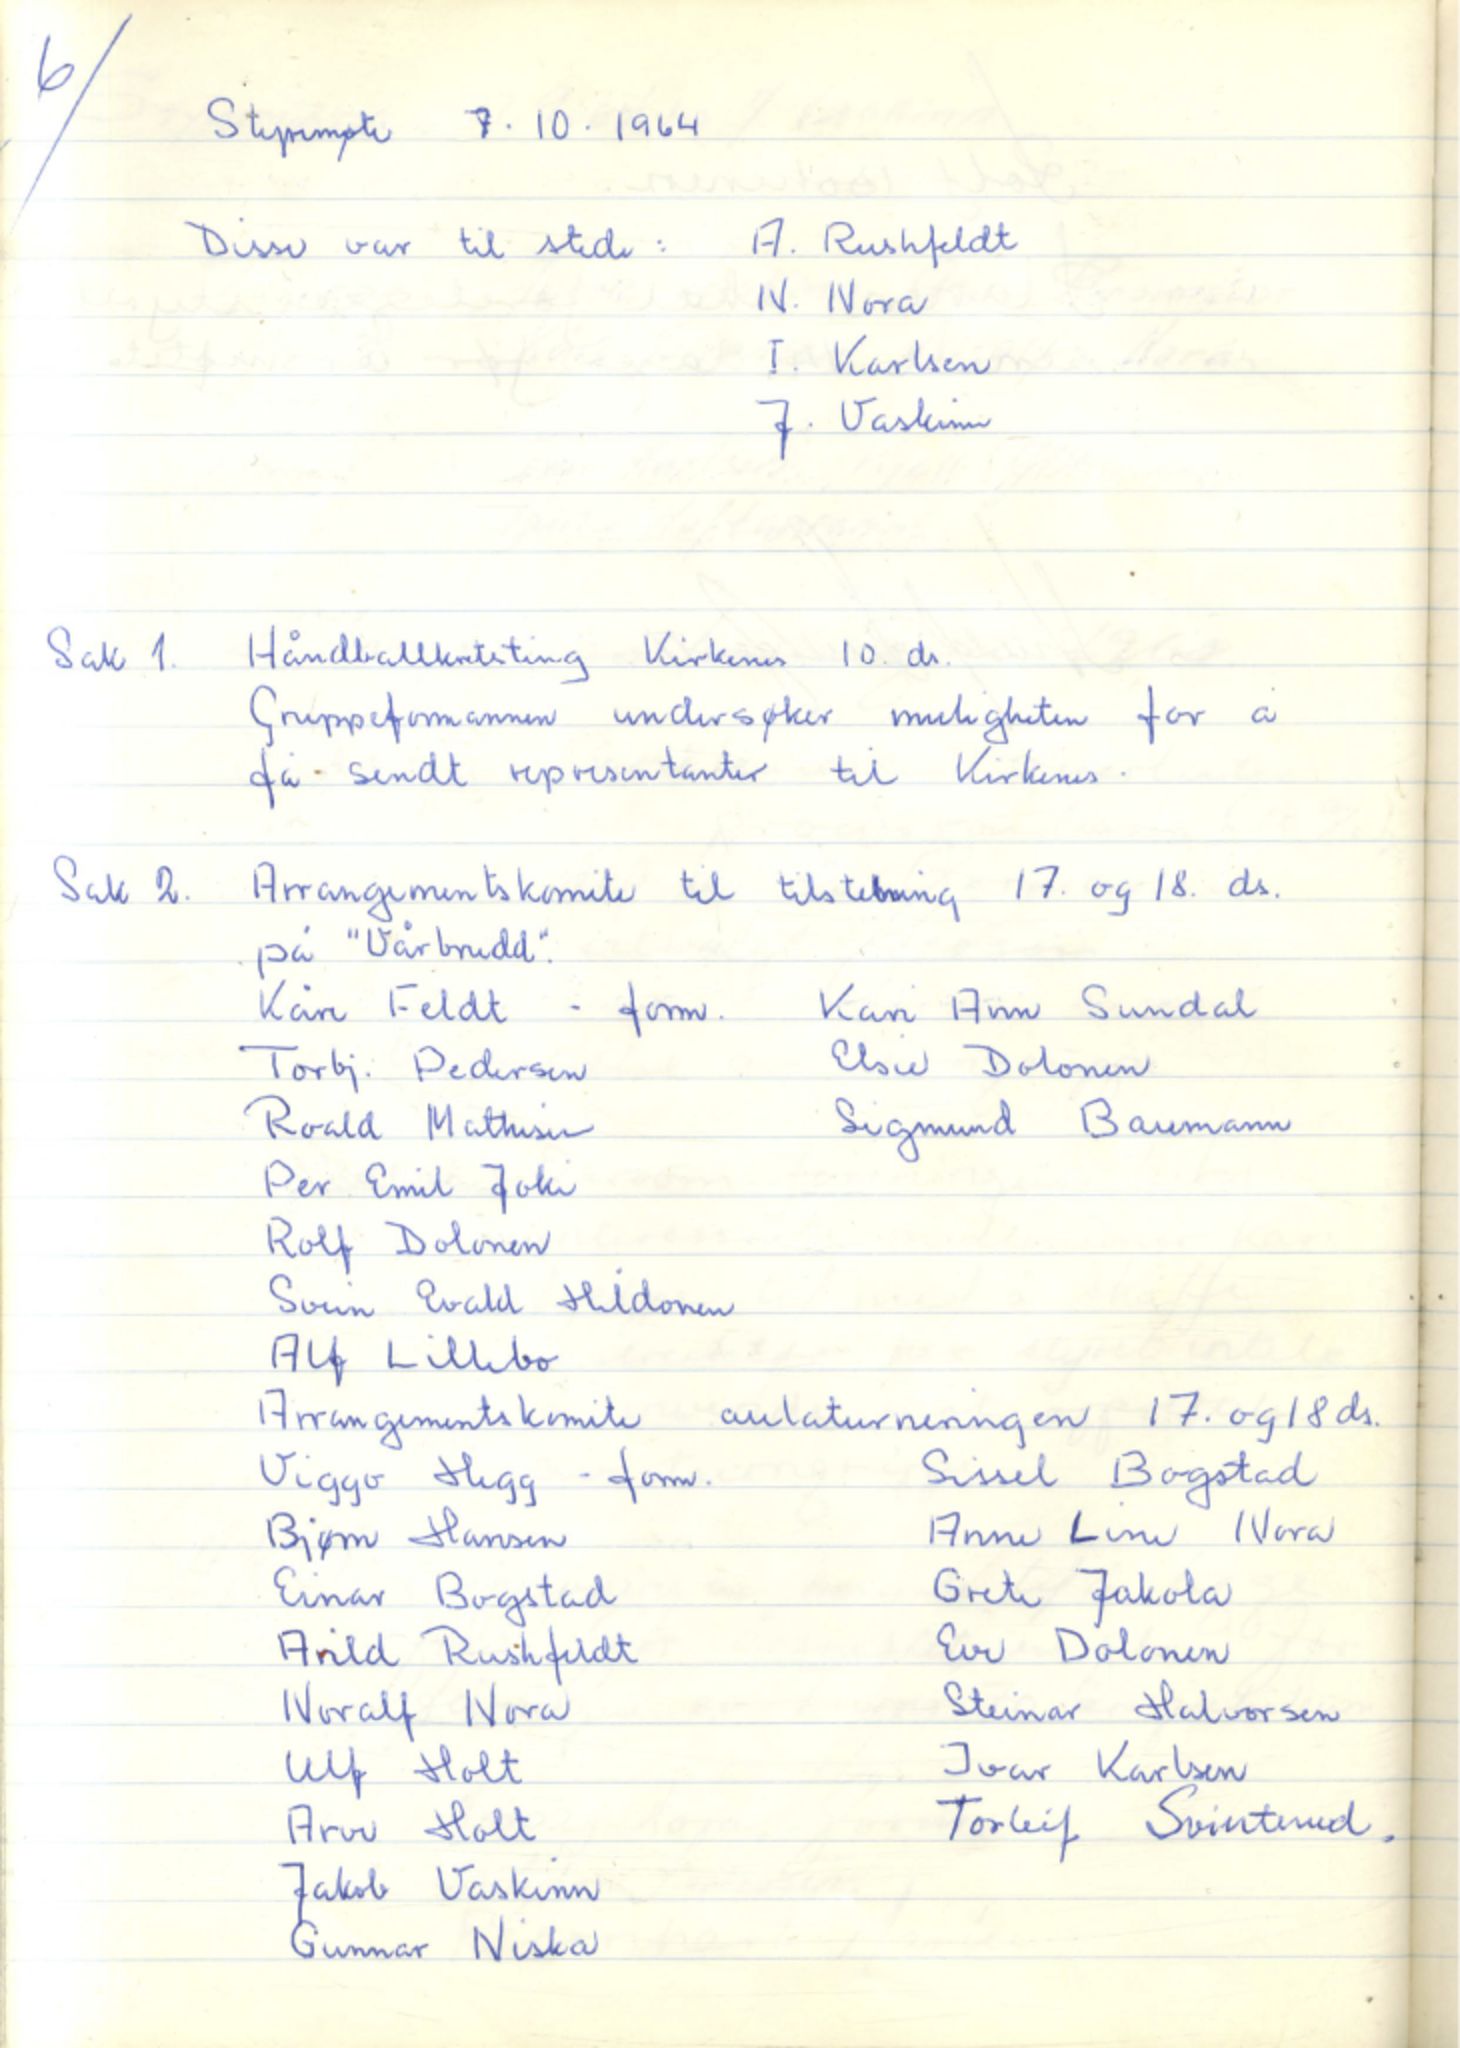 6/
Styremøte 7.10.1964
Disse var til stede: A. Rushfeldt
N. Nora
I. Karlsen
J. Vaskinn
Sak 1. Håndballkretsting Kirkenes 10. ds.
Gruppeformannen undersøker muligheten for å
få sendt representanter til Kirkenes.
Sak 2. Arrangementskomite til tilstelning 17. og 18. ds.
på "Vårbrudd".
Kåre Feldt - form. Kari Ann Sundal
Torbj. Pedersen Elsie Dolonen
Roald Mathisen Sigmund Baumann
Per Emil Joki
Rolf Dolonen
Svein Evald Hildonen
Alf Lillebo
Arrangementskomite aulaturneringen 17. og 18 ds.
Viggo Hegg - form. Sissel Bogstad
Bjørn Hansen Anne Line Nora
Einar Bogstad Grete Jakola
Arild Rushfeldt Eve Dolonen
Noralf Nora Steinar Halvorsen
Ulf Holt Ivar Karlsen
Arve Holt Torleif
Jakob Vaskinn
Gunnar Niska